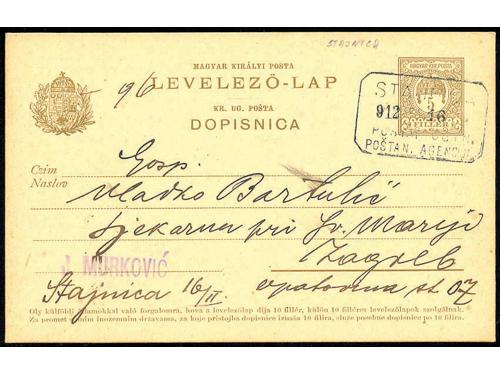 STAJNICA
MAGYAR KIRÁLYI POSTA
96
LEVELEZŐ-LAP
KR. UG. POŠTA
DOPISNICA
MAGYAR KIR. POSTA
5
FILLÉR
912 16
POŠTAN. AGENC
Czim
Naslov
Gosp.
Vladko Bartulić
ljekarna pri Sv. Mariji
Zagreb
J. MURKOVIĆ
Stajnica 16/II. opatovina st.
Oly külföldi államokkal való forgalomra, hova a levelezőlap díja 10 fillér, külön 10 filléres levelezőlapok szolgálnak.
Za promet s onim inozemnim državama, za koje pristojba dopisnice iznaša 10 filira, služe posebne dopisnice po 10 filira.